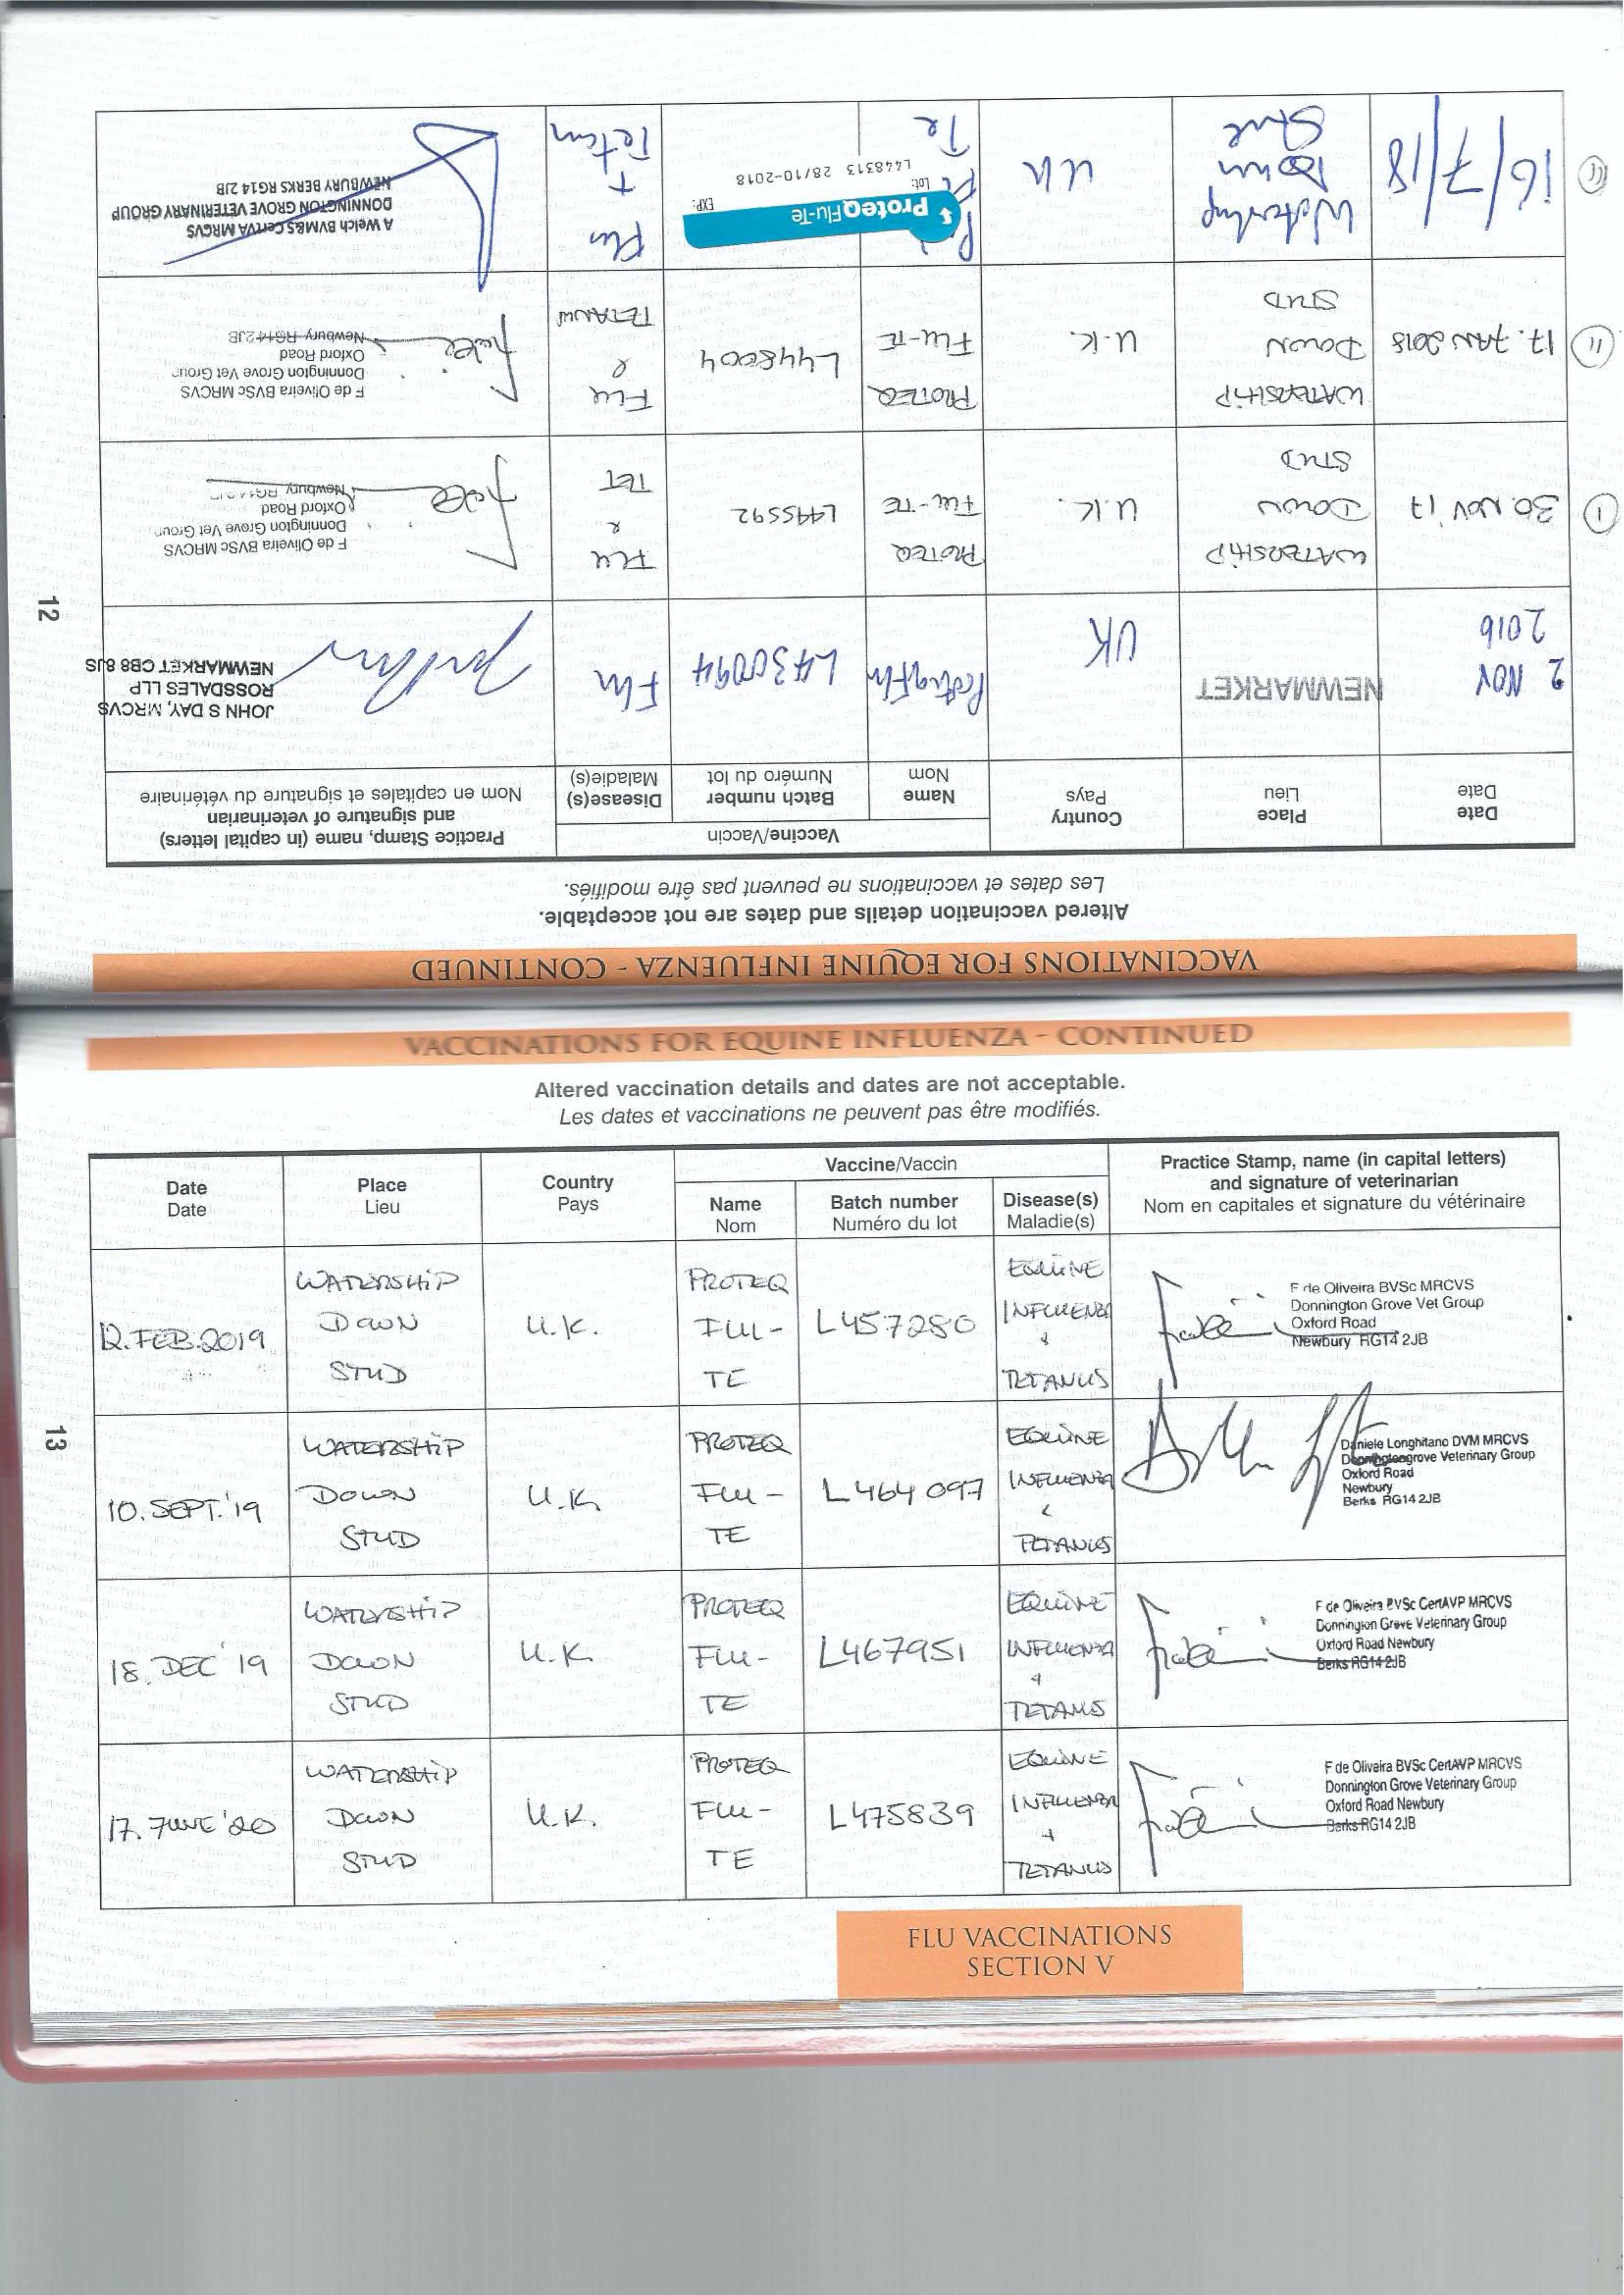 VACCINATIONS FOR EQUINE INFLUENZA - CONTINUED
Altered vaccination details and dates are not acceptable.
Les dates et vaccinations ne peuvent pas être modifiés.
Date
Date
Place
Lieu
Country
Pays
Vaccine/Vaccin
Name
Nom
Batch number
Numéro du lot
Disease(s)
Maladie(s)
Practice Stamp, name (in capital letters)
and signature of veterinarian
Nom en capitales et signature du vétérinaire
2 NOV
2016
NEWMARKET
UK
ProteqFlu
L430094
Flu
JOHN S DAY, MRCVS
ROSSDALES LLP
NEWMARKET CB8 8JS
12
I
30. NOV '17
WATERSHIP
DOWN
STUD
U.K.
PROTEQ
FLU-TE
L445592
FLU
&
TET
F de Oliveira BVSc MRCVS
Donnington Grove Vet Group
Oxford Road
Newbury
II
17. JAN 2018
WATERSHIP
DOWN
STUD
U.K.
PROTEQ
FLU-TE
L448004
FLU
&
TETANUS
F de Oliveira BVSc MRCVS
Donnington Grove Vet Group
Oxford Road
Newbury RG14 2JB
III
16/7/18
Watership
Down
UK
Te
ProteqFlu-Te
Lot:
EXP:
L448313 28/10-2018
Flu
+
Tetan
A Welch BVM&S CertVA MRCVS
DONNINGTON GROVE VETERINARY GROUP
NEWBURY BERKS RG14 2JB
VACCINATIONS FOR EQUINE INFLUENZA - CONTINUED
Altered vaccination details and dates are not acceptable.
Les dates et vaccinations ne peuvent pas être modifiés.
Date
Date
Place
Lieu
Country
Pays
Vaccine/Vaccin
Name
Nom
Batch number
Numéro du lot
Disease(s)
Maladie(s)
Practice Stamp, name (in capital letters)
and signature of veterinarian
Nom en capitales et signature du vétérinaire
12.FEB.2019
WATERSHIP
DOWN
STUD
U.K.
PROTEQ
FLU-
TE
L457280
EQUINE
INFLUENZA
&
TETANUS
F de Oliveira BVSc MRCVS
Donnington Grove Vet Group
Oxford Road
Newbury RG14 2JB
13
10.SEPT.'19
WATERSHIP
DOWN
STUD
U.K
PROTEQ
FLU-
TE
L464097
EQUINE
INFLUENZA
&
TETANUS
Daniele Longhitano DVM MRCVS
Donningtongrove Veterinary Group
Oxford Road
Newbury
Berks RG14 2JB
18. DEC '19
WATERSHIP
DOWN
STUD
U.K.
PROTEQ
FLU-
TE
L467951
EQUINE
INFLUENZA
&
TETANUS
F de Oliveira BVSc CertAVP MRCVS
Donnington Grove Veterinary Group
Oxford Road Newbury
Berks RG14 2JB
17. JUNE '20
WATERSHIP
DOWN
STUD
U.K.
PROTEQ
FLU-
TE
L475839
EQUINE
INFLUENZA
+
TETANUS
F de Oliveira BVSc CertAVP MRCVS
Donnington Grove Veterinary Group
Oxford Road Newbury
Berks RG14 2JB
FLU VACCINATIONS
SECTION V